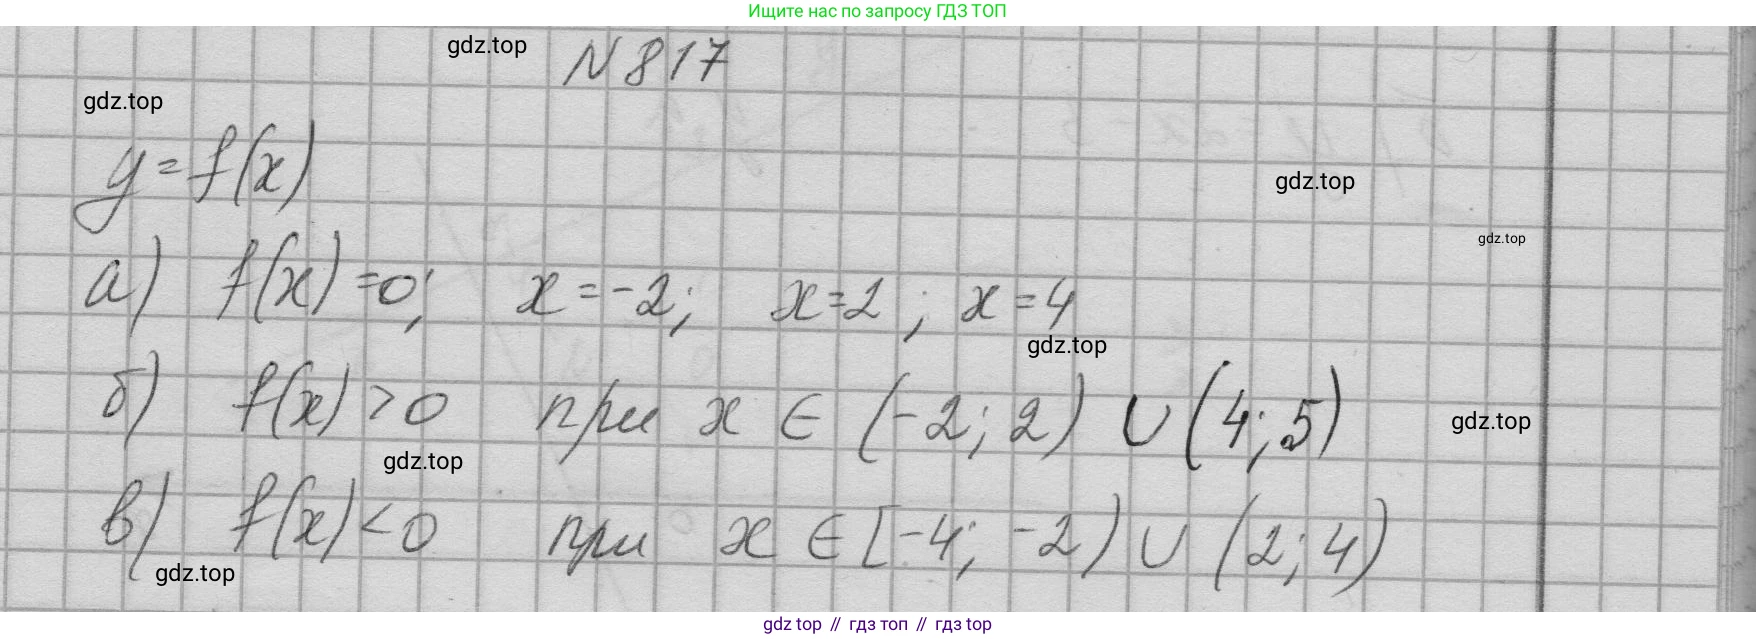 Ищите нас по запросу ГДЗ ТОП
gdz.top
N 817
gdz.top
y = f(x)
gdz.top
gdz.top
а) f(x) = 0; x = -2; x = 2 ; x = 4
gdz.top
б) f(x) > 0 при x ∈ (-2; 2) ∪ (4; 5)
gdz.top
gdz.top
в) f(x) < 0 при x ∈ [-4; -2) ∪ (2; 4)
gdz.top
gdz top // гдз топ // гдз top